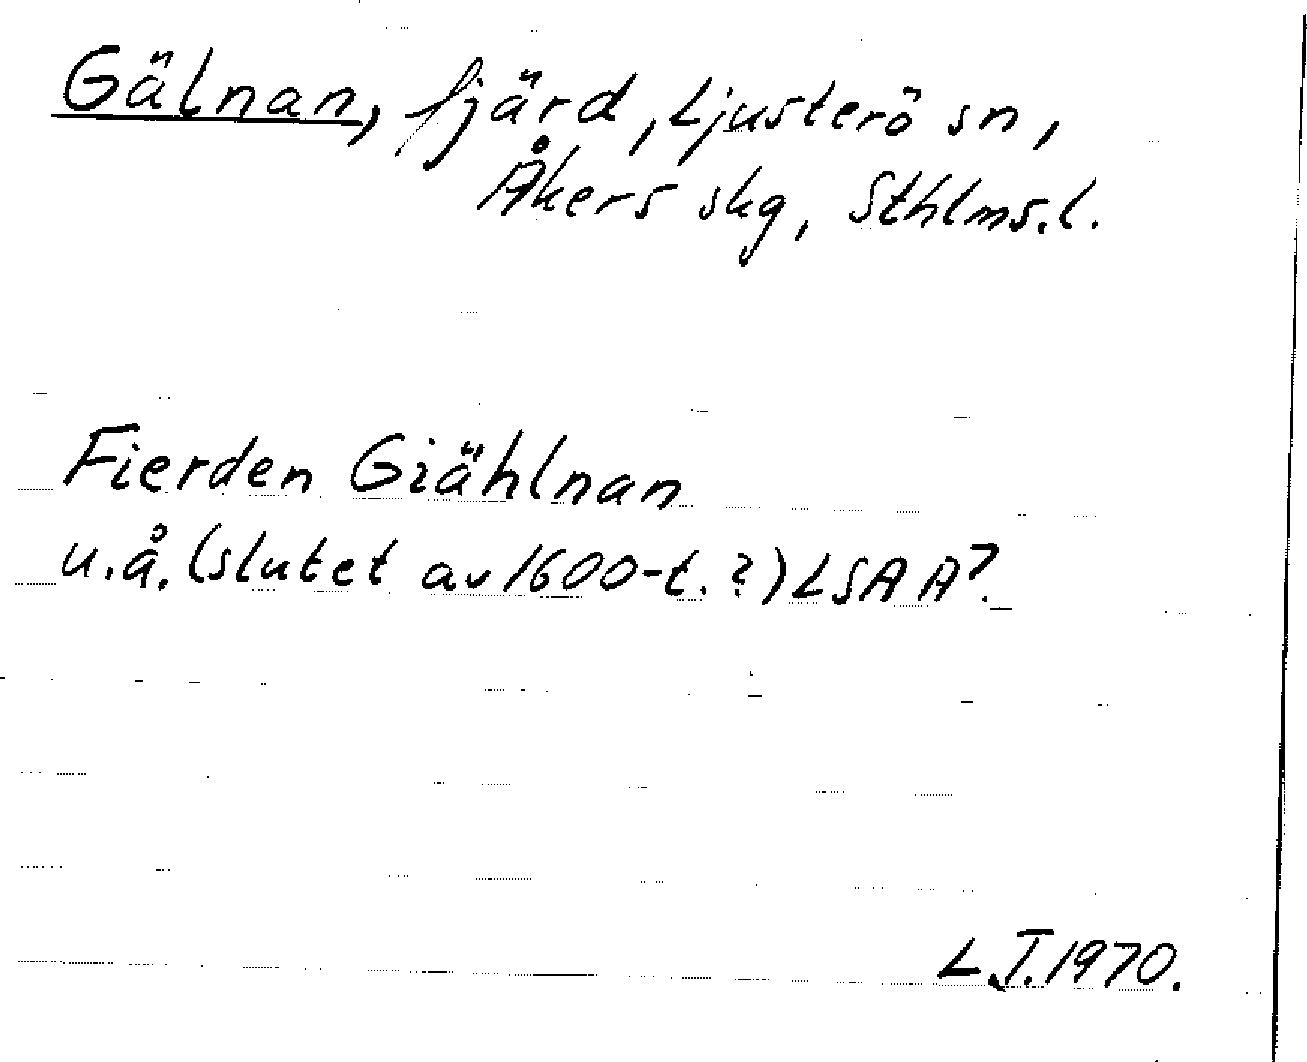 Gälnan, fjärd, Ljusterö sn,
Åkers skg, Sthlms.l.
Fierden Giählnan
u.å. (slutet av 1600-t.?) LSA A7.
L.J. 1970.